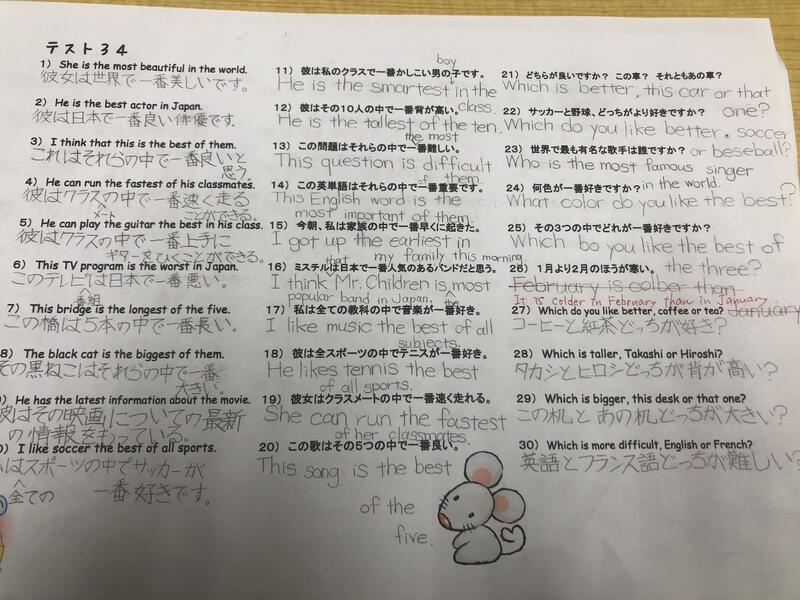 テスト34
1) She is the most beautiful in the world.
彼女は世界で一番美しいです。
2) He is the best actor in Japan.
彼は日本で一番良い俳優です。
3) I think that this is the best of them.
これはそれらの中で一番良いと
思う。
4) He can run the fastest of his classmates.
彼はクラスの中で一番速く走る
メート
ことができる。
5) He can play the guitar the best in his class.
彼はクラスの中で一番上手に
ギターをひくことができる。
6) This TV program is the worst in Japan.
このテレビは日本で一番悪い。
番組
7) This bridge is the longest of the five.
この橋は5本の中で一番長い。
8) The black cat is the biggest of them.
その黒ねこはそれらの中で一番
大きい。
9) He has the latest information about the movie.
彼はその映画についての最新
の情報をもっている。
) I like soccer the best of all sports.
はスポーツの中でサッカーが
全ての
一番好きです。
11) 彼は私のクラスで一番かしこい男の子です。
boy
He is the smartest in the
class.
12) 彼はその10人の中で一番背が高い。
He is the tallest of the ten.
13) この問題はそれらの中で一番難しい。
the most
This question is difficult
of them.
14) この英単語はそれらの中で一番重要です。
This English word is the
most important of them.
15) 今朝、私は家族の中で一番早くに起きた。
I got up the earliest in
my family this morning.
16) ミスチルは日本で一番人気のあるバンドだと思う。
that
I think Mr. Children is most
the
popular band in Japan.
17) 私は全ての教科の中で音楽が一番好き。
I like music the best of all
subjects.
18) 彼は全スポーツの中でテニスが一番好き。
He likes tennis the best
of all sports.
19) 彼女はクラスメートの中で一番速く走れる。
She can run the fastest
of her classmates.
20) この歌はその5つの中で一番良い。
This song is the best
of the
five.
21) どちらが良いですか? この車? それともあの車?
Which is better, this car or that
one?
22) サッカーと野球、どっちがより好きですか?
Which do you like better, soccer
or beseball?
23) 世界で最も有名な歌手は誰ですか?
Who is the most famous singer
in the world.
?
24) 何色が一番好きですか?
What color do you like the best?
25) その3つの中でどれが一番好きですか?
Which bo you like the best of
the three?
26) 1月より2月のほうが寒い。
February is colber than
January
It is colder in February than in January.
27) Which do you like better, coffee or tea?
コーヒーと紅茶どっちが好き?
28) Which is taller, Takashi or Hiroshi?
タカシとヒロシどっちが背が高い?
29) Which is bigger, this desk or that one?
この机とあの机どっちが大きい?
30) Which is more difficult, English or French?
英語とフランス語どっちが難しい?